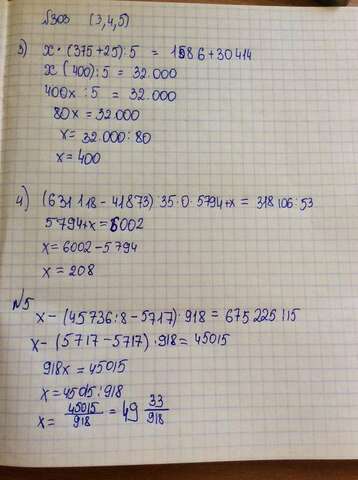 №303 (3,4,5)
3) x · (375+25) : 5 = 1586+30414
x (400) : 5 = 32.000
400x : 5 = 32.000
80x = 32.000
x = 32.000 : 80
x = 400
4) (631 118 – 41873) : 35 · 0 · 5794+x = 318 106 : 53
5794+x = 6002
x = 6002 – 5794
x = 208
№5
x – (45736 : 8 – 5717) · 918 = 675 225 : 15
x – (5717 – 5717) · 918 = 45015
918x = 45015
x = 45015 : 918
x = 45015/918 = 49 33/918